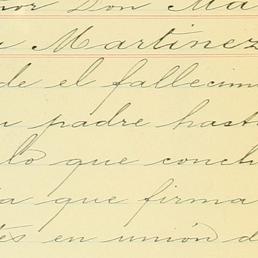 ñor Don Ma
Martinez
de el fallecim
u padre hast
lo que conclu
ia que firma
tes en unión d